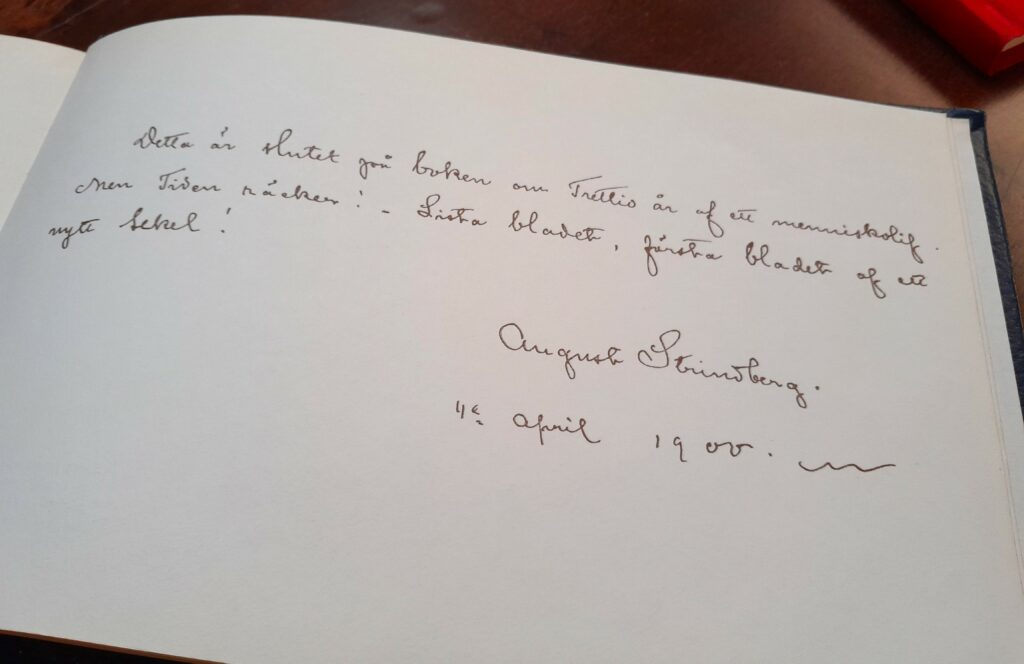 Detta är slutet på boken om Trettio år af ett menniskolif.
Men Tiden räcker! – Sista bladet, första bladet af ett
nytt Sekel!
August Strindberg.
4e April 1900.